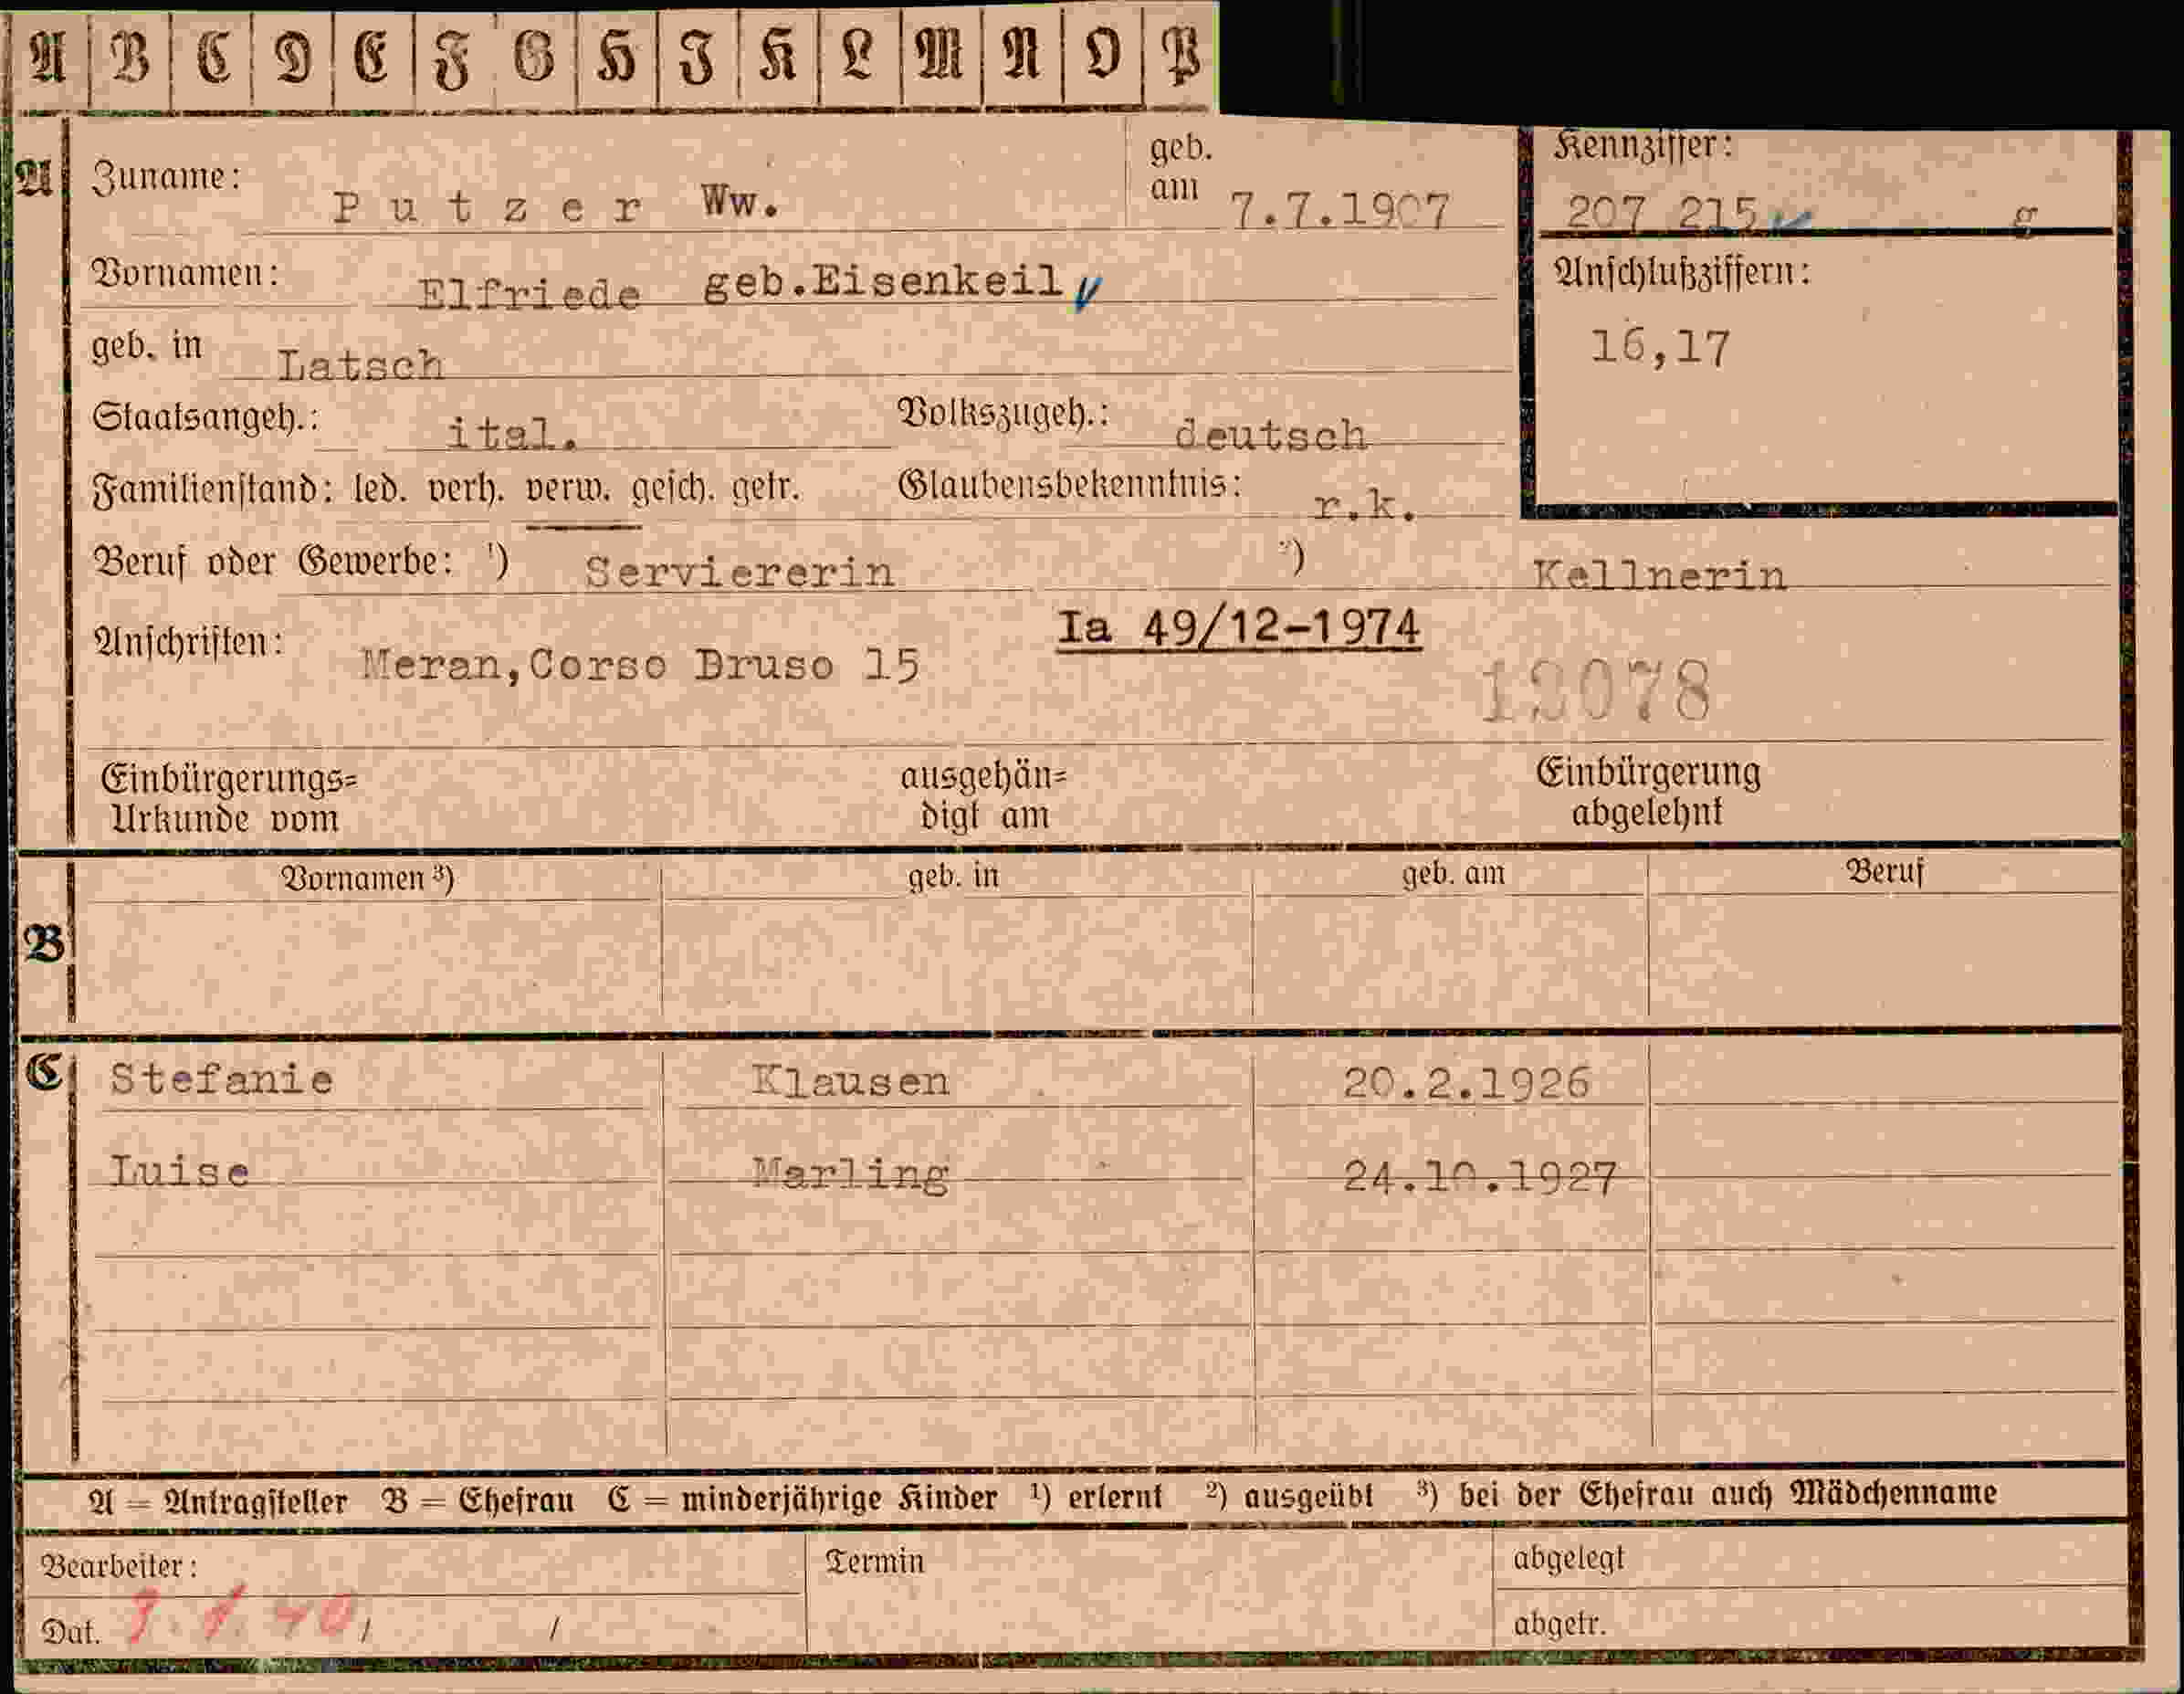 A B C D E F G H I K L M N O P
A Zuname: Putzer Ww. geb. am 7.7.1907
Kennziffer: 207 215 g
Vornamen: Elfriede geb.Eisenkeil
Anschlußziffern:
16,17
geb. in Latsch
Staatsangeh.: ital. Volkszugeh.: deutsch
Familienstand: led. verh. verw. gesch. getr. Glaubensbekenntnis: r.k.
Beruf oder Gewerbe: ¹) Serviererin ²) Kellnerin
Ia 49/12-1974
Anschriften: Meran,Corso Druso 15
Einbürgerungs= ausgehän= Einbürgerung
Urkunde vom digt am abgelehnt
Vornamen ³) geb. in geb. am Beruf
B
C Stefanie Klausen 20.2.1926
Luise Marling 24.10.1927
A = Antragsteller B = Ehefrau C = minderjährige Kinder ¹) erlernt ²) ausgeübt ³) bei der Ehefrau auch Mädchenname
Bearbeiter: Termin abgelegt
Dat. / / abgetr.